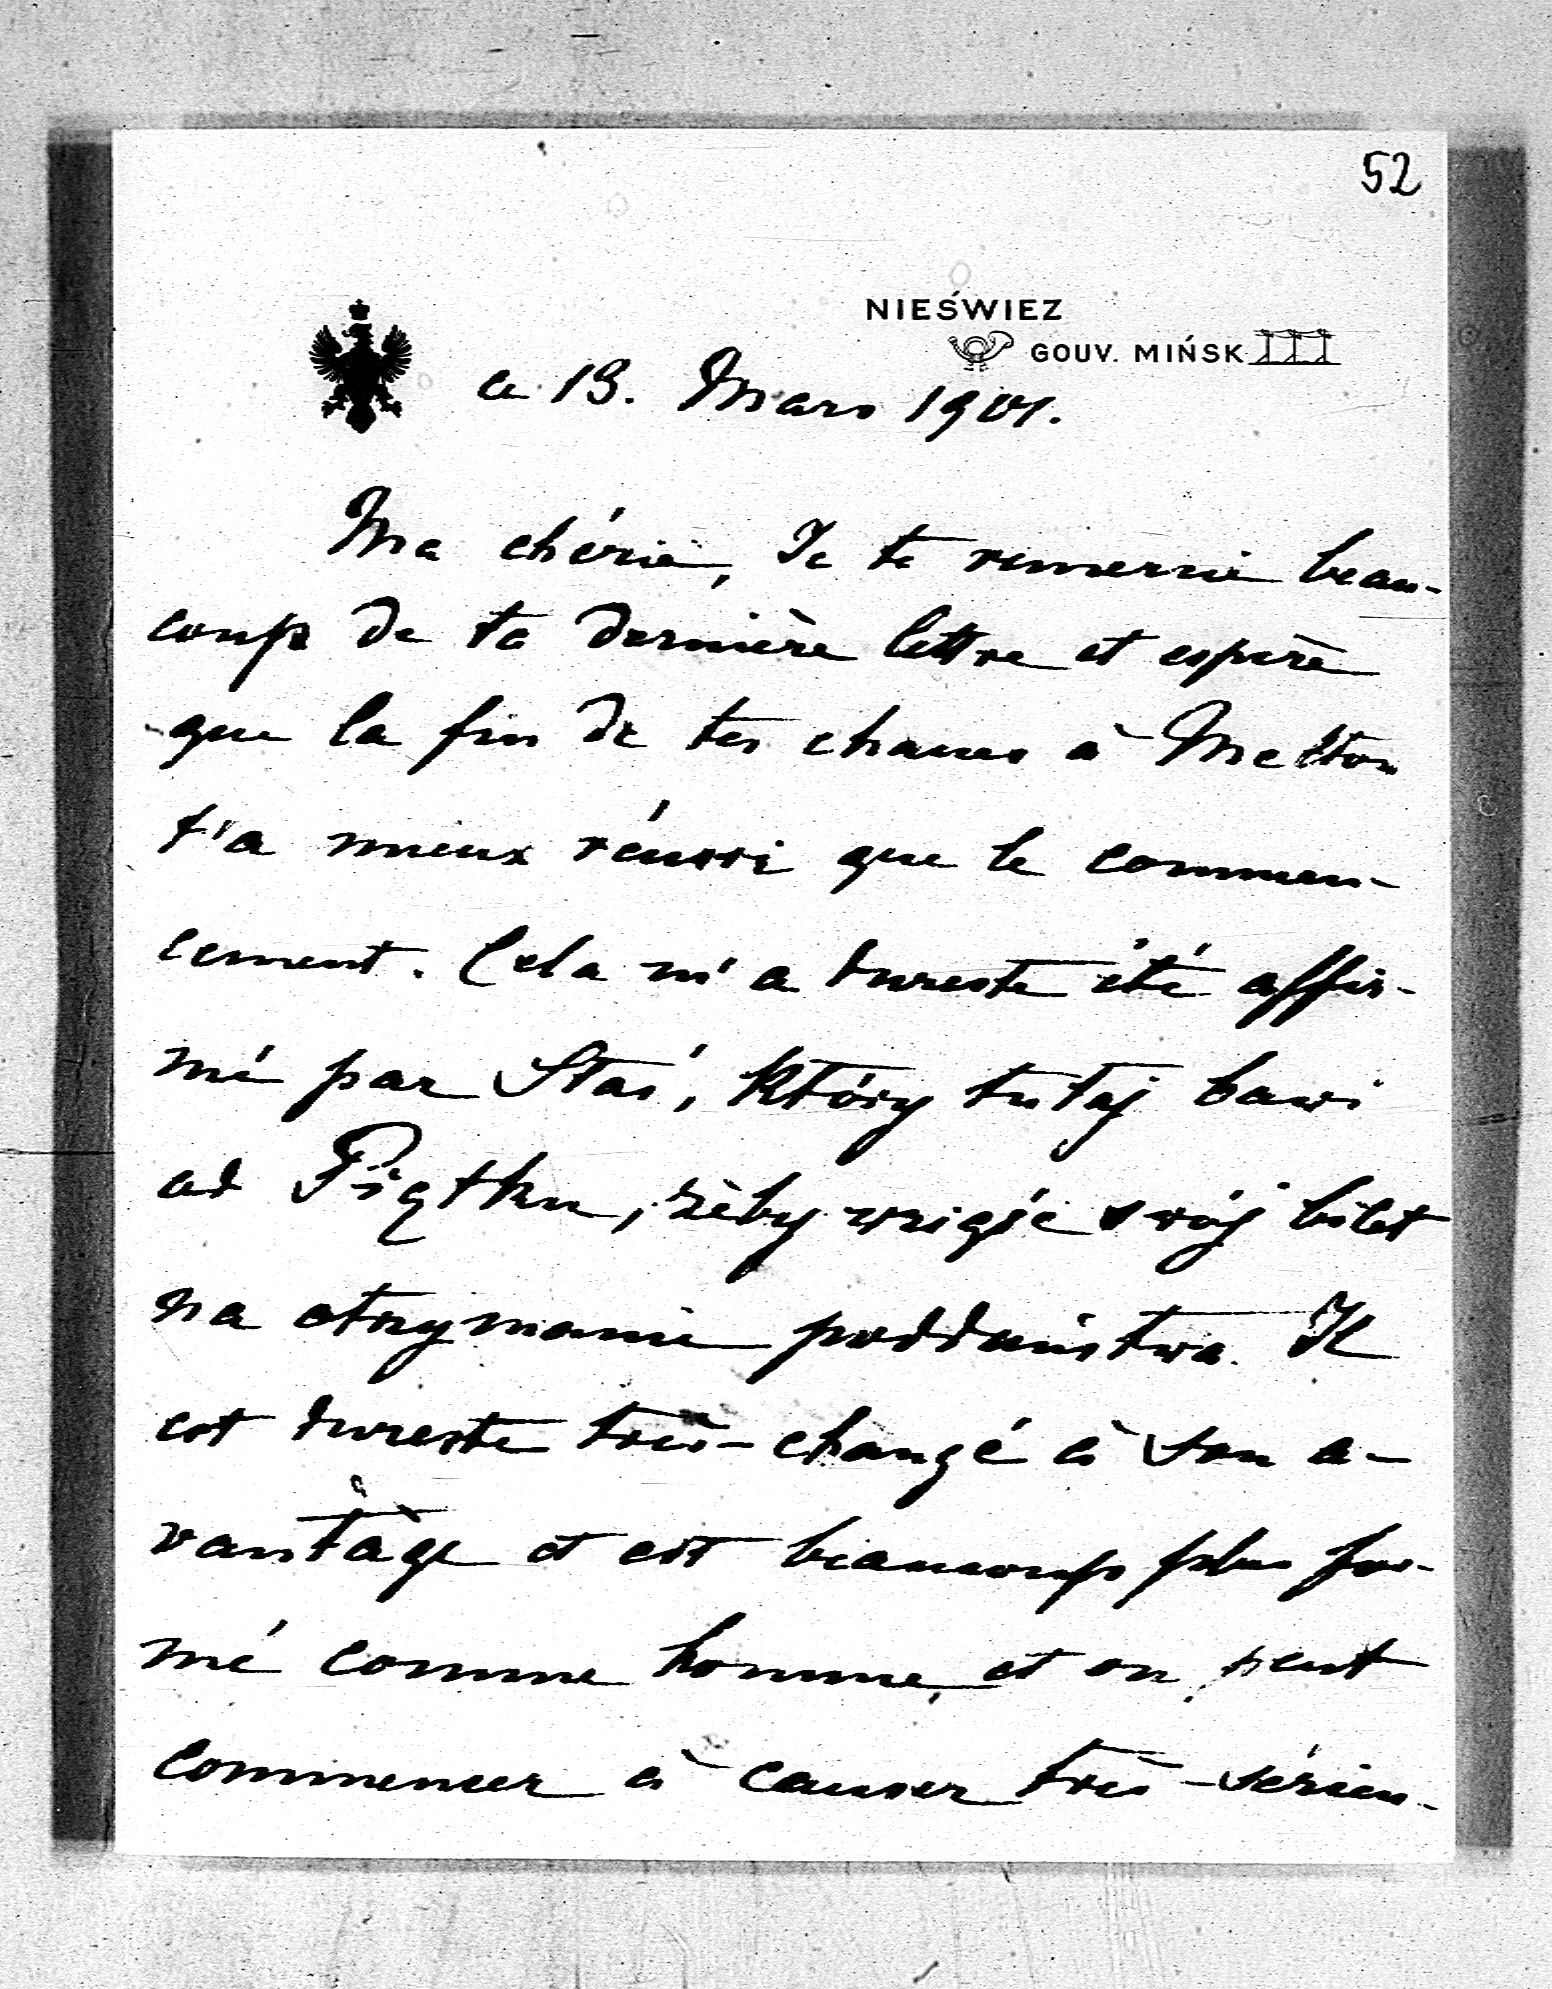 52
NIEŚWIEZ
GOUV. MIŃSK
a 13. Mars 1901.
Ma chérie, Je te remercie beau-
coup de ta dernière lettre et espère
que la fin de tes chasses à Melton
t'a mieux réussi que le commen-
cement. Cela m'a dureste été affir-
mé par Staś, który tutaj bawi
od Piątku, żeby wziąść swój bilet
na otrzymanie poddaństwa. Il
est dureste très-changé à son a-
vantage et est beaucoup plus for-
mé comme homme, et on peut
commencer à causer très-sérieu-